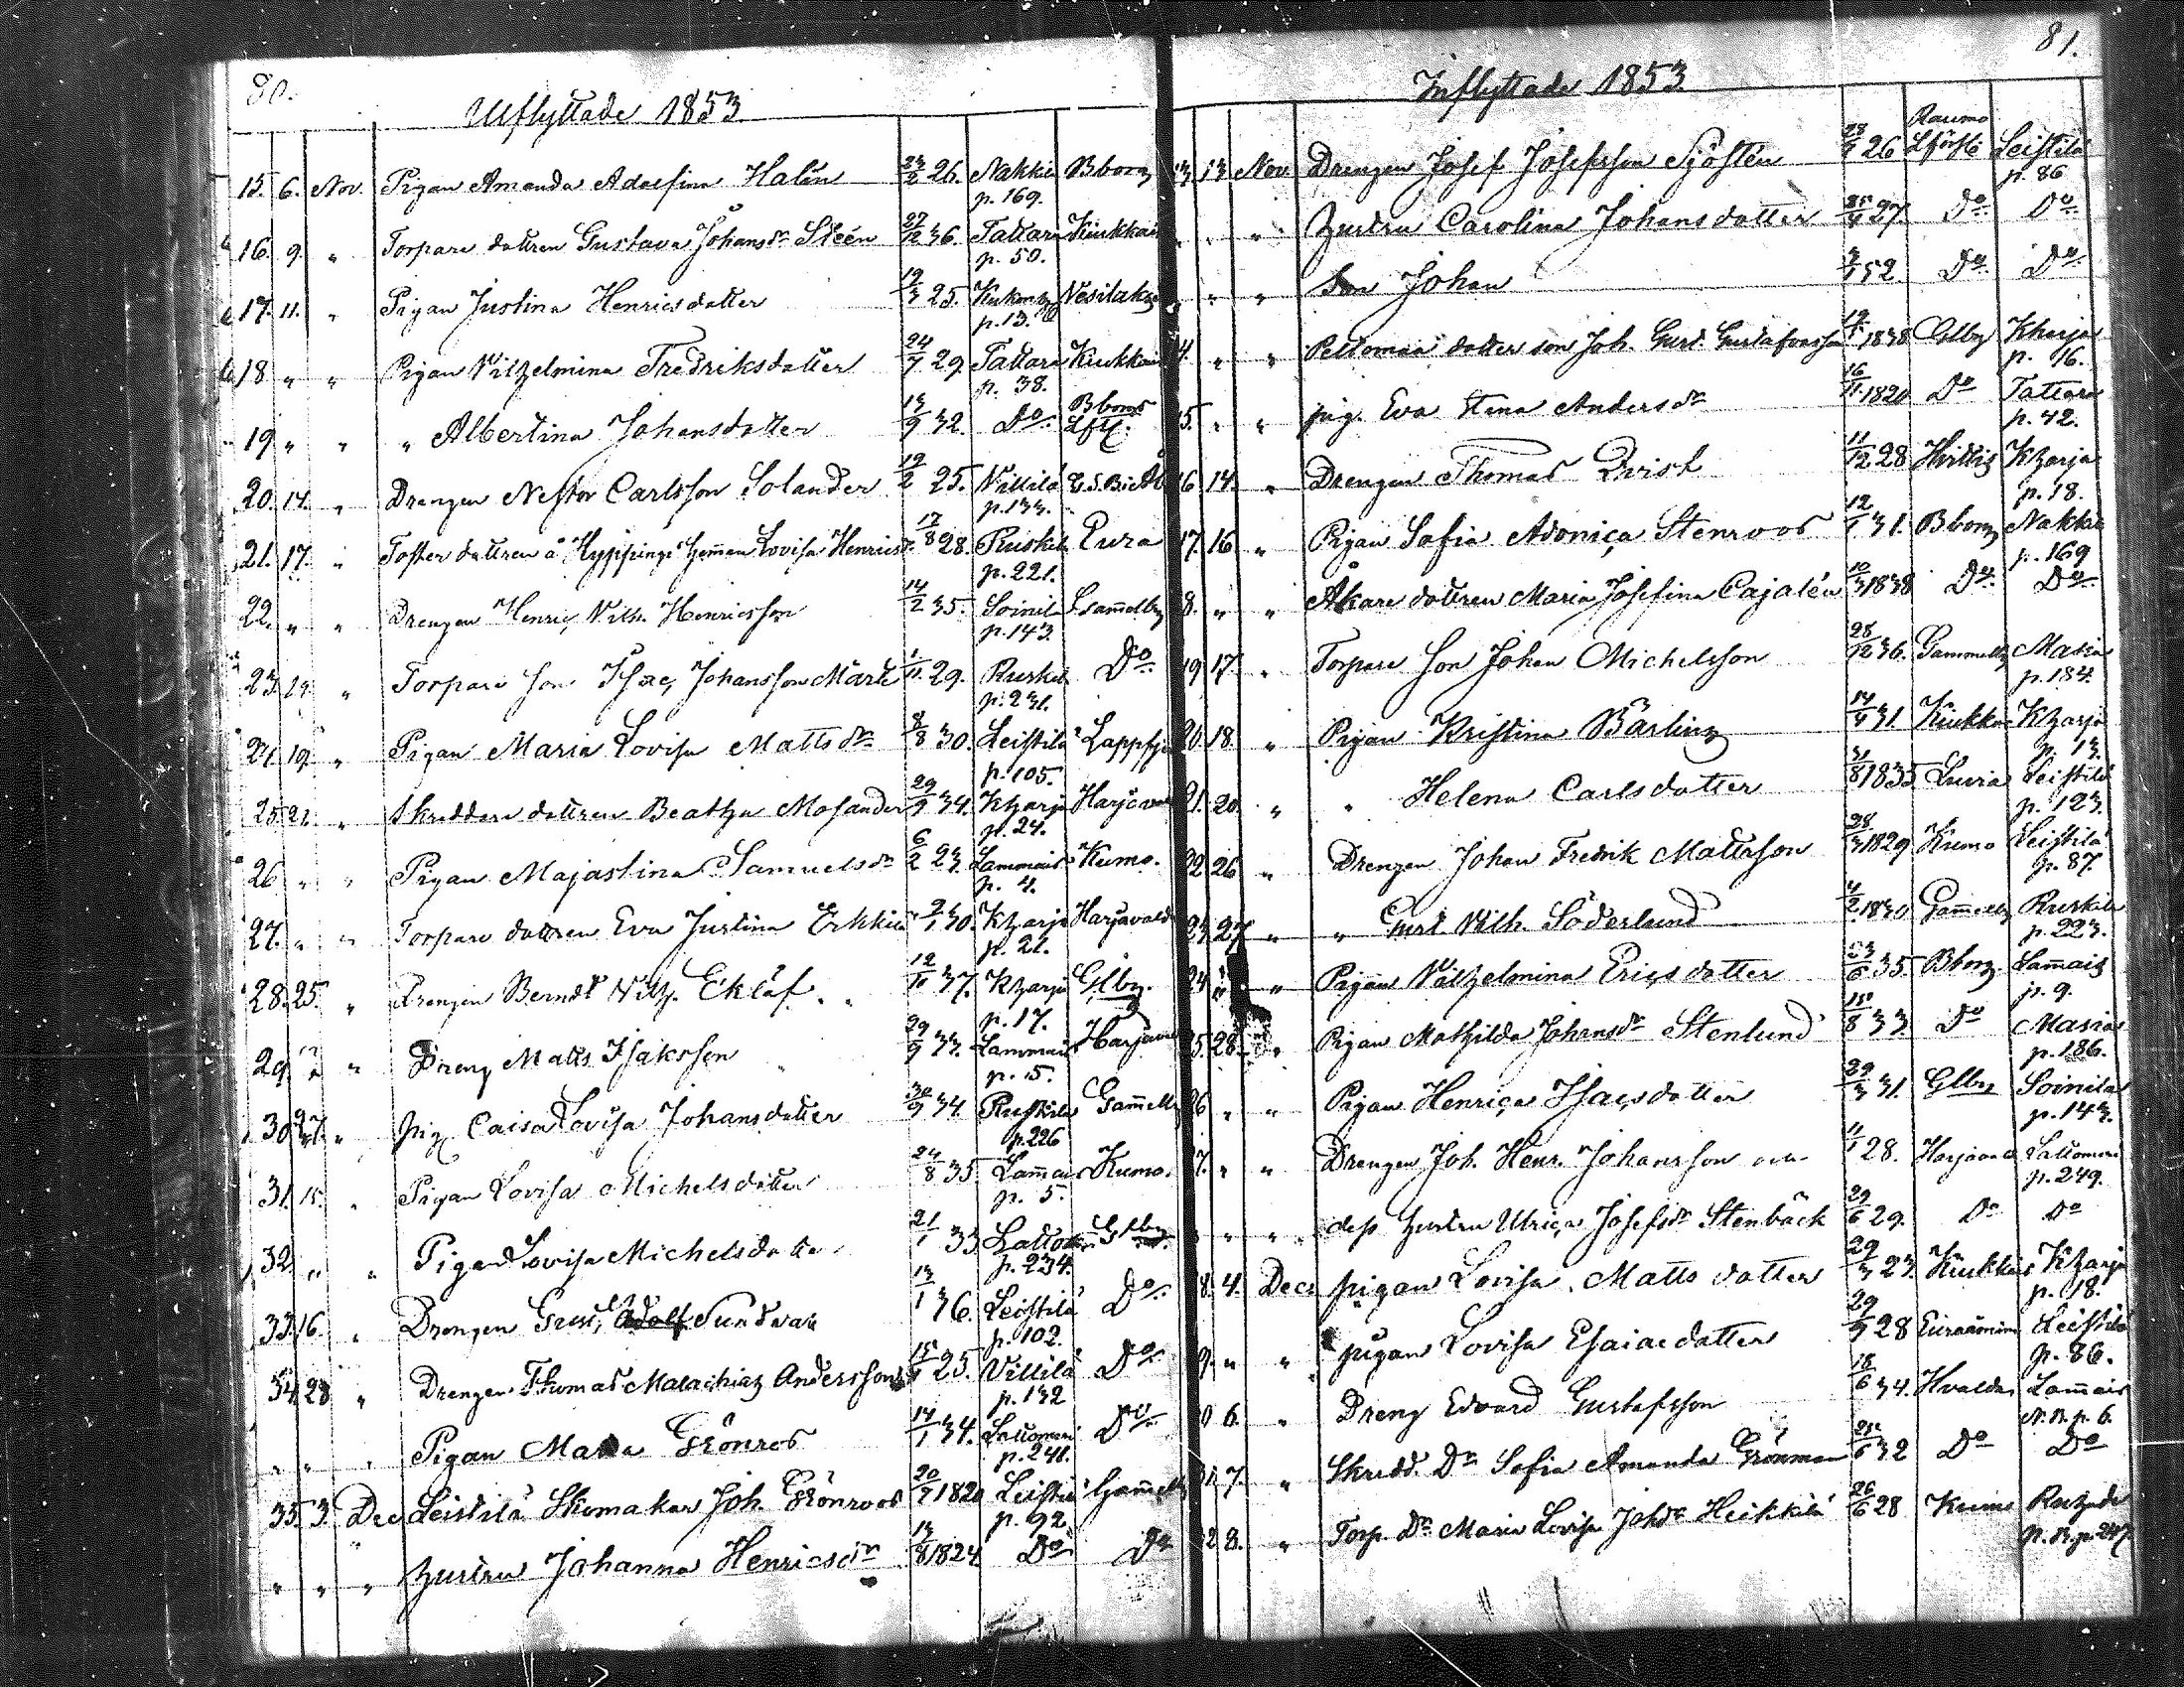 80.
Utflyttade 1853
15. 6. Nov. Pigan Amanda Adolfina Halén 23/2 26. Nakkila Bborg
p. 169.
16. 9. " Torpare dottren Gustava Johansdr Steén 27/12 36. Tattara Kiukkais
p. 50.
17. 11. " Pigan Justina Henricsdotter 19/3 25. Vesilaks
p. 13.
18 " " Pigan Vilhelmina Fredriksdotter 24/7 29 Tattara Kiukkais
p. 38.
19 " " " Albertina Johansdotter 13/9 32. Do Bborgs Lfs.
20. 14. " Drengen Nestor Carlsson Solander 19/2 25. Villilä
p. 133.
21. 17. " dottren å Hyppingi hemman Lovisa Henricsdr 17/8 28. Ruskila Eura
p. 221.
22. " " Drengen Henric Vilh. Henricsson 14/2 35. Soinila Gammelby
p. 143.
23. 19. " Torpare son Isac Johansson Märti 1/11 29. Ruskila Do
p. 231.
24. 19. " Pigan Maria Lovisa Mattsdr 8/8 30. Leistilä Lappfj
p. 105.
25. 21. " Skreddare dottren Beatha Mosander 29/9 34. Kharja Harjavalta
p. 24.
26 " " Pigan Majastina Samuelsdr 6/2 23. Lammais Kumo.
p. 4.
27. " " Torpare dottren Eva Justina Erkkilä 2/1 30. Kharja Harjavalda
p. 21.
28. 25. " Drengen Berndt Vilh. Eklöf 12/10 37. Kharja Glby.
p. 17.
29. " " Dreng Matts Isaksson 29/9 33. Lammais Harjaval
p. 5.
30. 27. " Pig. Caisa Lovisa Johansdotter 30/9 34. Ruskila Gammelby
p. 226
31. 15. " Pigan Lovisa Michelsdotter 24/8 35. Lammais Kumo.
p. 5.
32. " " Pigan Lovisa Michelsdotter 21/1 33 Lattomeri Glby
p. 234.
33. 16. " Drengen Gust. Adolf Sundvall 13/1 36. Leistilä Do
p. 102.
34. 28 " Drengen Thomas Malachias Andersson 15/9 25. Villilä Do
p. 132
" " " Pigan Maria Grönros 14/1 34. Lattomeri Do
p. 241.
35. 3. Dec Leistilä Skomakar Joh. Grönroos 20/7 1820 Leistilä Gammelby
p. 92
" " " hustru Johanna Henricsdr 13/8 1824 Do Do
81.
Inflyttade 1853
Raumo
13. 13. Nov. Drengen Josef Josefsson Sjöstén 28/9 26 Lförs. Leistilä
p. 86
" " " hustru Carolina Johansdotter 25/9 27. Do Do
" " " Son Johan 52. Do Do
14. " " Peltomaa dotter son Joh. Gust. Gustafsson 19/1 1838 Glby Kharja
p. 16.
15. " " pig. Eva Stina Andersdr 16/11 1820 Do Tattara
p. 42.
16 14. " Drengen Thomas Qvist 11/12 28 Hvittis Kharja
p. 18.
17. 16 " Pigan Sofia Adonica Stenroos 12/1 31. Bborg Nakkila
p. 169
18. " " Åkare dottren Maria Josefina Cajalén 10/3 1838 Do Do
19 17. " Torpare Son Johan Michelsson 28/12 36. Gammelby Masia
p. 184.
20. 18. " Pigan Kristina Bärling 14/9 31. Kiukkais Kharja
p. 13
21. 20. " " Helena Carlsdotter 31/8 1835 Luvia Leistilä
p. 123.
22. 26 " Drengen Johan Fredrik Mattsson 28/3 1829 Kumo Leistilä
p. 87.
23. 27 " " Gust. Vilh. Söderlund 4/2 1830 Gammelby Ruskila
p. 223.
24 " " Pigan Vilhelmina Ericsdotter 23/6 35. Bborg. Lammais
p. 9.
25. 28. " Pigan Mathilda Johansdr Stenlund 15/8 33. Do Masias
p. 186.
26 " " Pigan Henrica Isacsdotter 29/3 31. Glby Soinila
p. 143.
27. " " Drengen Joh. Henr. Johansson och 28. Harjavalt Lattomeri
p. 249.
" " " dess hustru Ulrica Josefsdr Stenbäck 29/6 29. Do Do
28. 4. Decr pigan Lovisa Mattsdotter 29/3 23. Kiukkais Kharja
p. 18.
29. " " pigan Lovisa Esaiaedotter 29/9 28 Euraåminne Leistilä
p. 86.
30 6. " Dreng Edvard Gustafsson 18/6 34. Hvalda Lammais
N.B. p. 6.
31. 7. " Skredd. Dr Sofia Amanda Grönman 25/6 32 Do Do
32 8. " Torp. Dr Maria Lovisa Johdr Heikkilä 26/6 28 Kumo
N.B. p. 247.